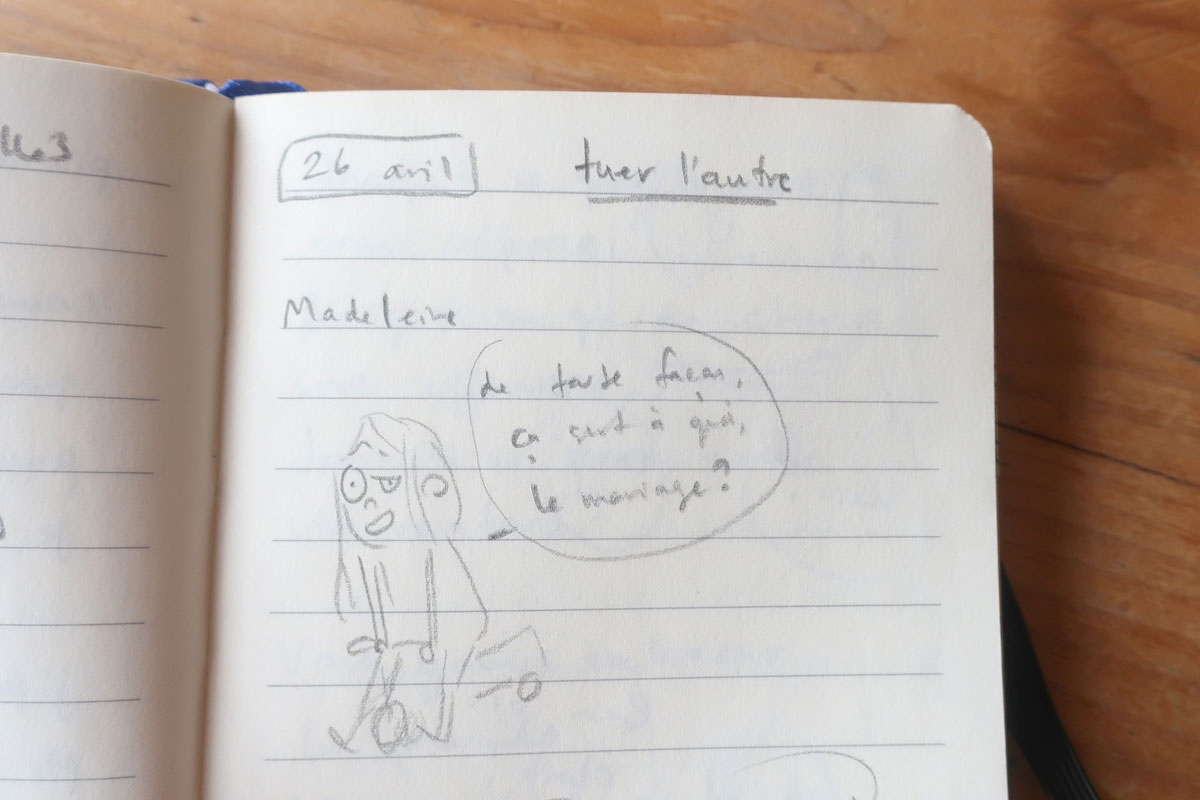 26 avril
tuer l'autre
Madeleine
de toute façon,
ça sert à quoi,
le mariage?